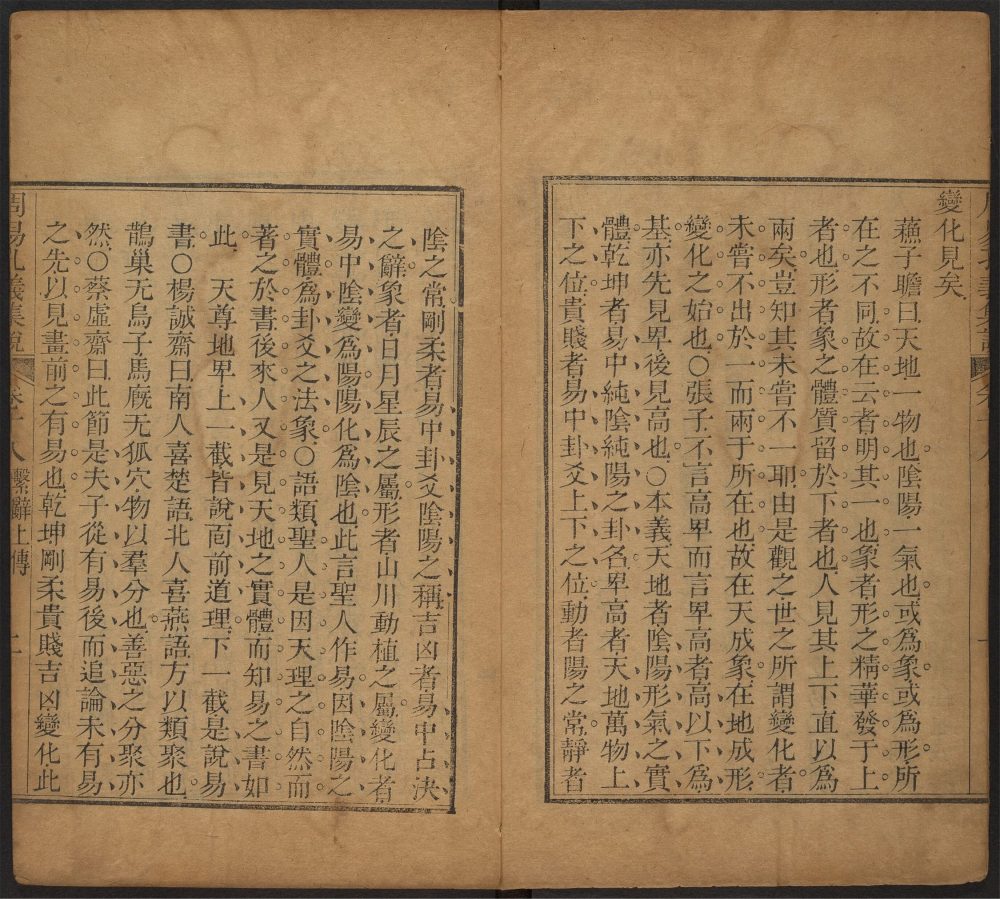 變化見矣
蘓子瞻曰天地一物也陰陽一氣也或為象或為形所
在之不同故在云者明其一也象者形之精華發于上
者也形者象之體質留於下者也人見其上下直以為
兩矣豈知其未嘗不一耶由是觀之世之所謂變化者
未嘗不出於一而兩于所在也故在天成象在地成形
變化之始也○張子不言高卑而言卑高者高以下為
基亦先見卑後見高也○本義天地者陰陽形氣之實
體乾坤者易中純陰純陽之卦名卑高者天地萬物上
下之位貴賤者易中卦爻上下之位動者陽之常靜者
陰之常剛柔者易中卦爻陰陽之稱吉凶者易中占决
之辭象者日月星辰之屬形者山川動植之屬變化者
易中陰變為陽陽化為陰也此言聖人作易因陰陽之
實體為卦爻之法象○語類聖人是因天理之自然而
著之於書後來人又是見天地之實體而知易之書如
此 天尊地卑上一截皆說面前道理下一截是說易
書○楊誠齋曰南人喜楚語北人喜燕語方以類聚也
鵲巢无烏子馬廐无狐穴物以羣分也善惡之分聚亦
然○蔡虛齋曰此節是夫子從有易後而追論未有易
之先以見畫前之有易也乾坤剛柔貴賤吉凶變化此
繫辭上傳
二